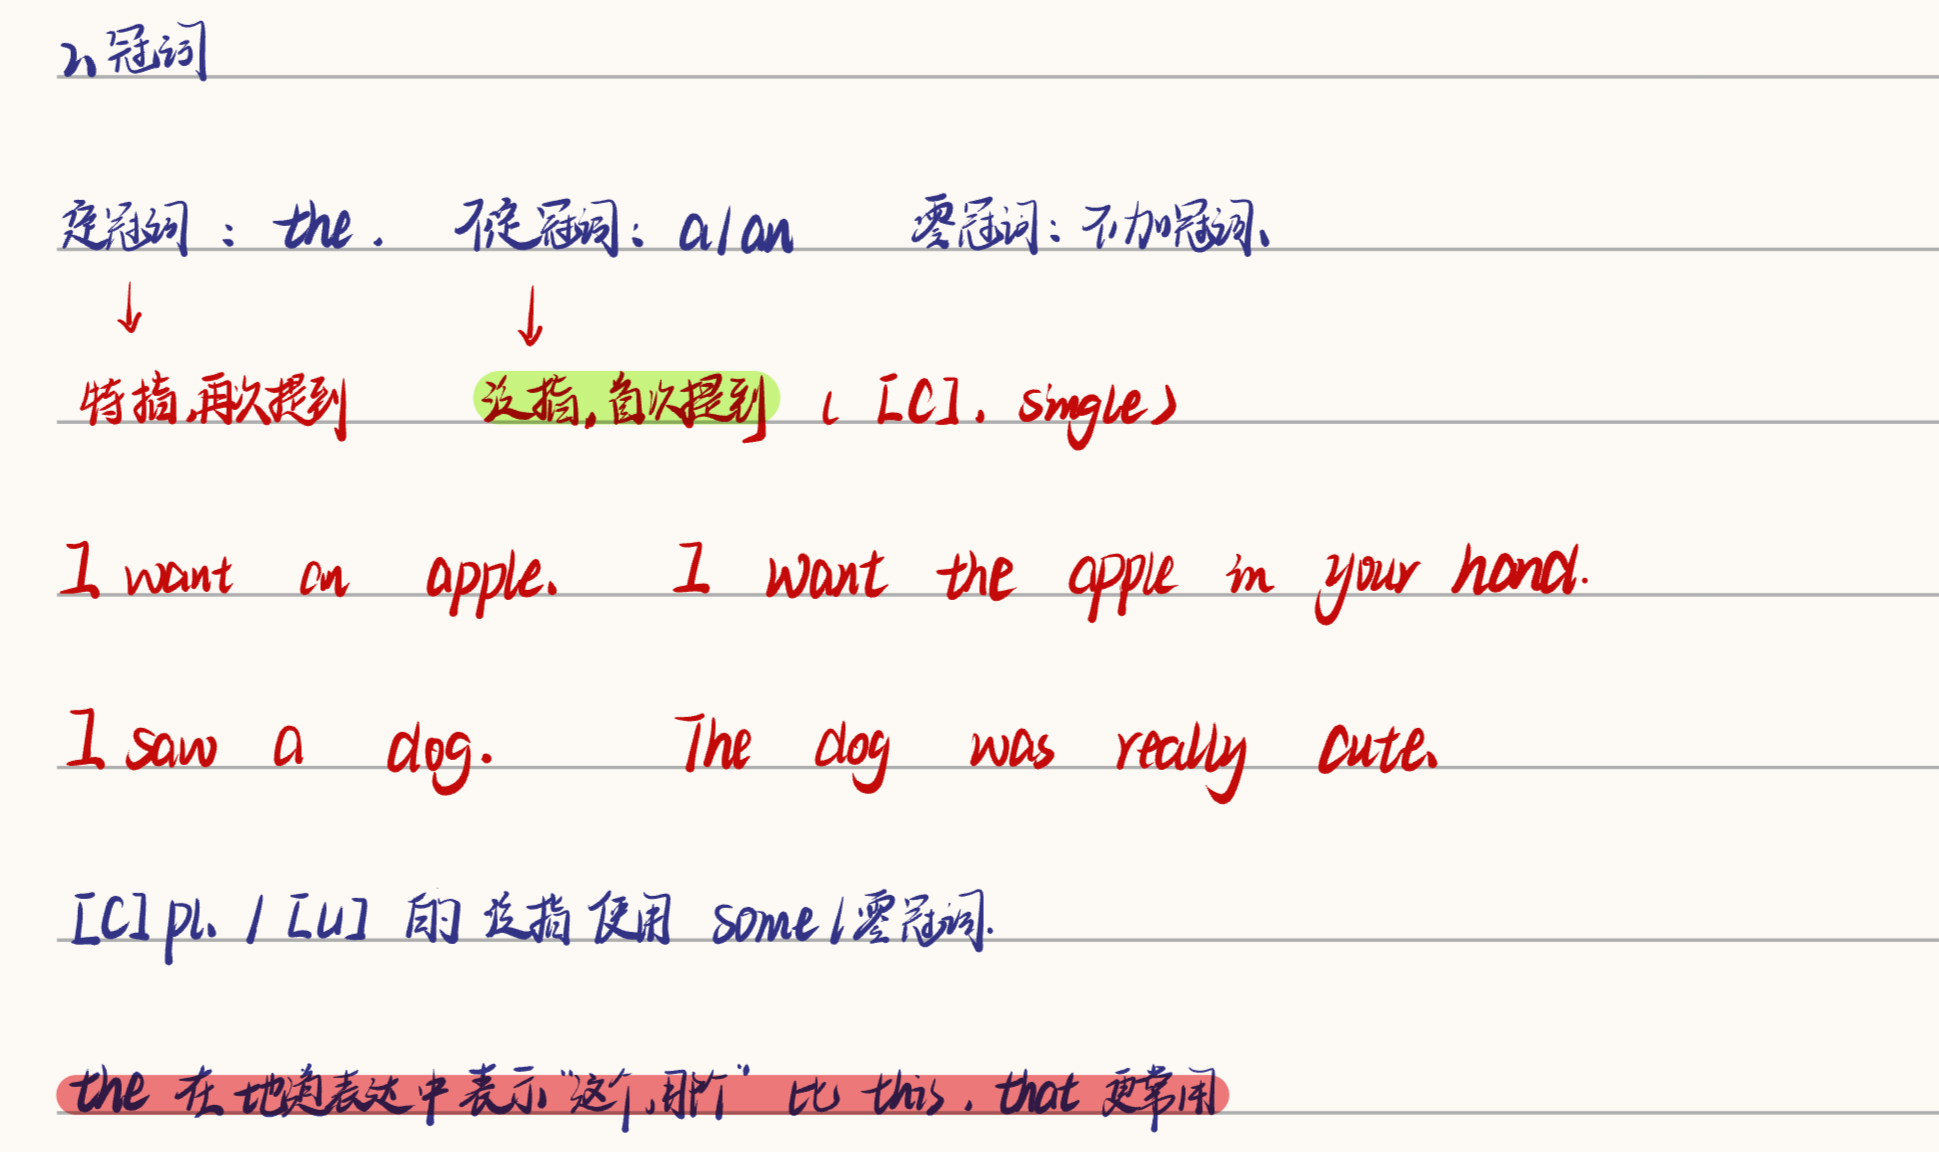 2、冠词
定冠词：the. 不定冠词：a/an 零冠词：不加冠词、
↓ ↓
特指,再次提到 泛指,首次提到 ([C]. single)
I want an apple. I want the apple in your hand.
I saw a dog. The dog was really cute.
[C]pl. / [U] 的泛指使用 some/零冠词.
the 在地道表达中表示“这个,那个”比 this, that 更常用